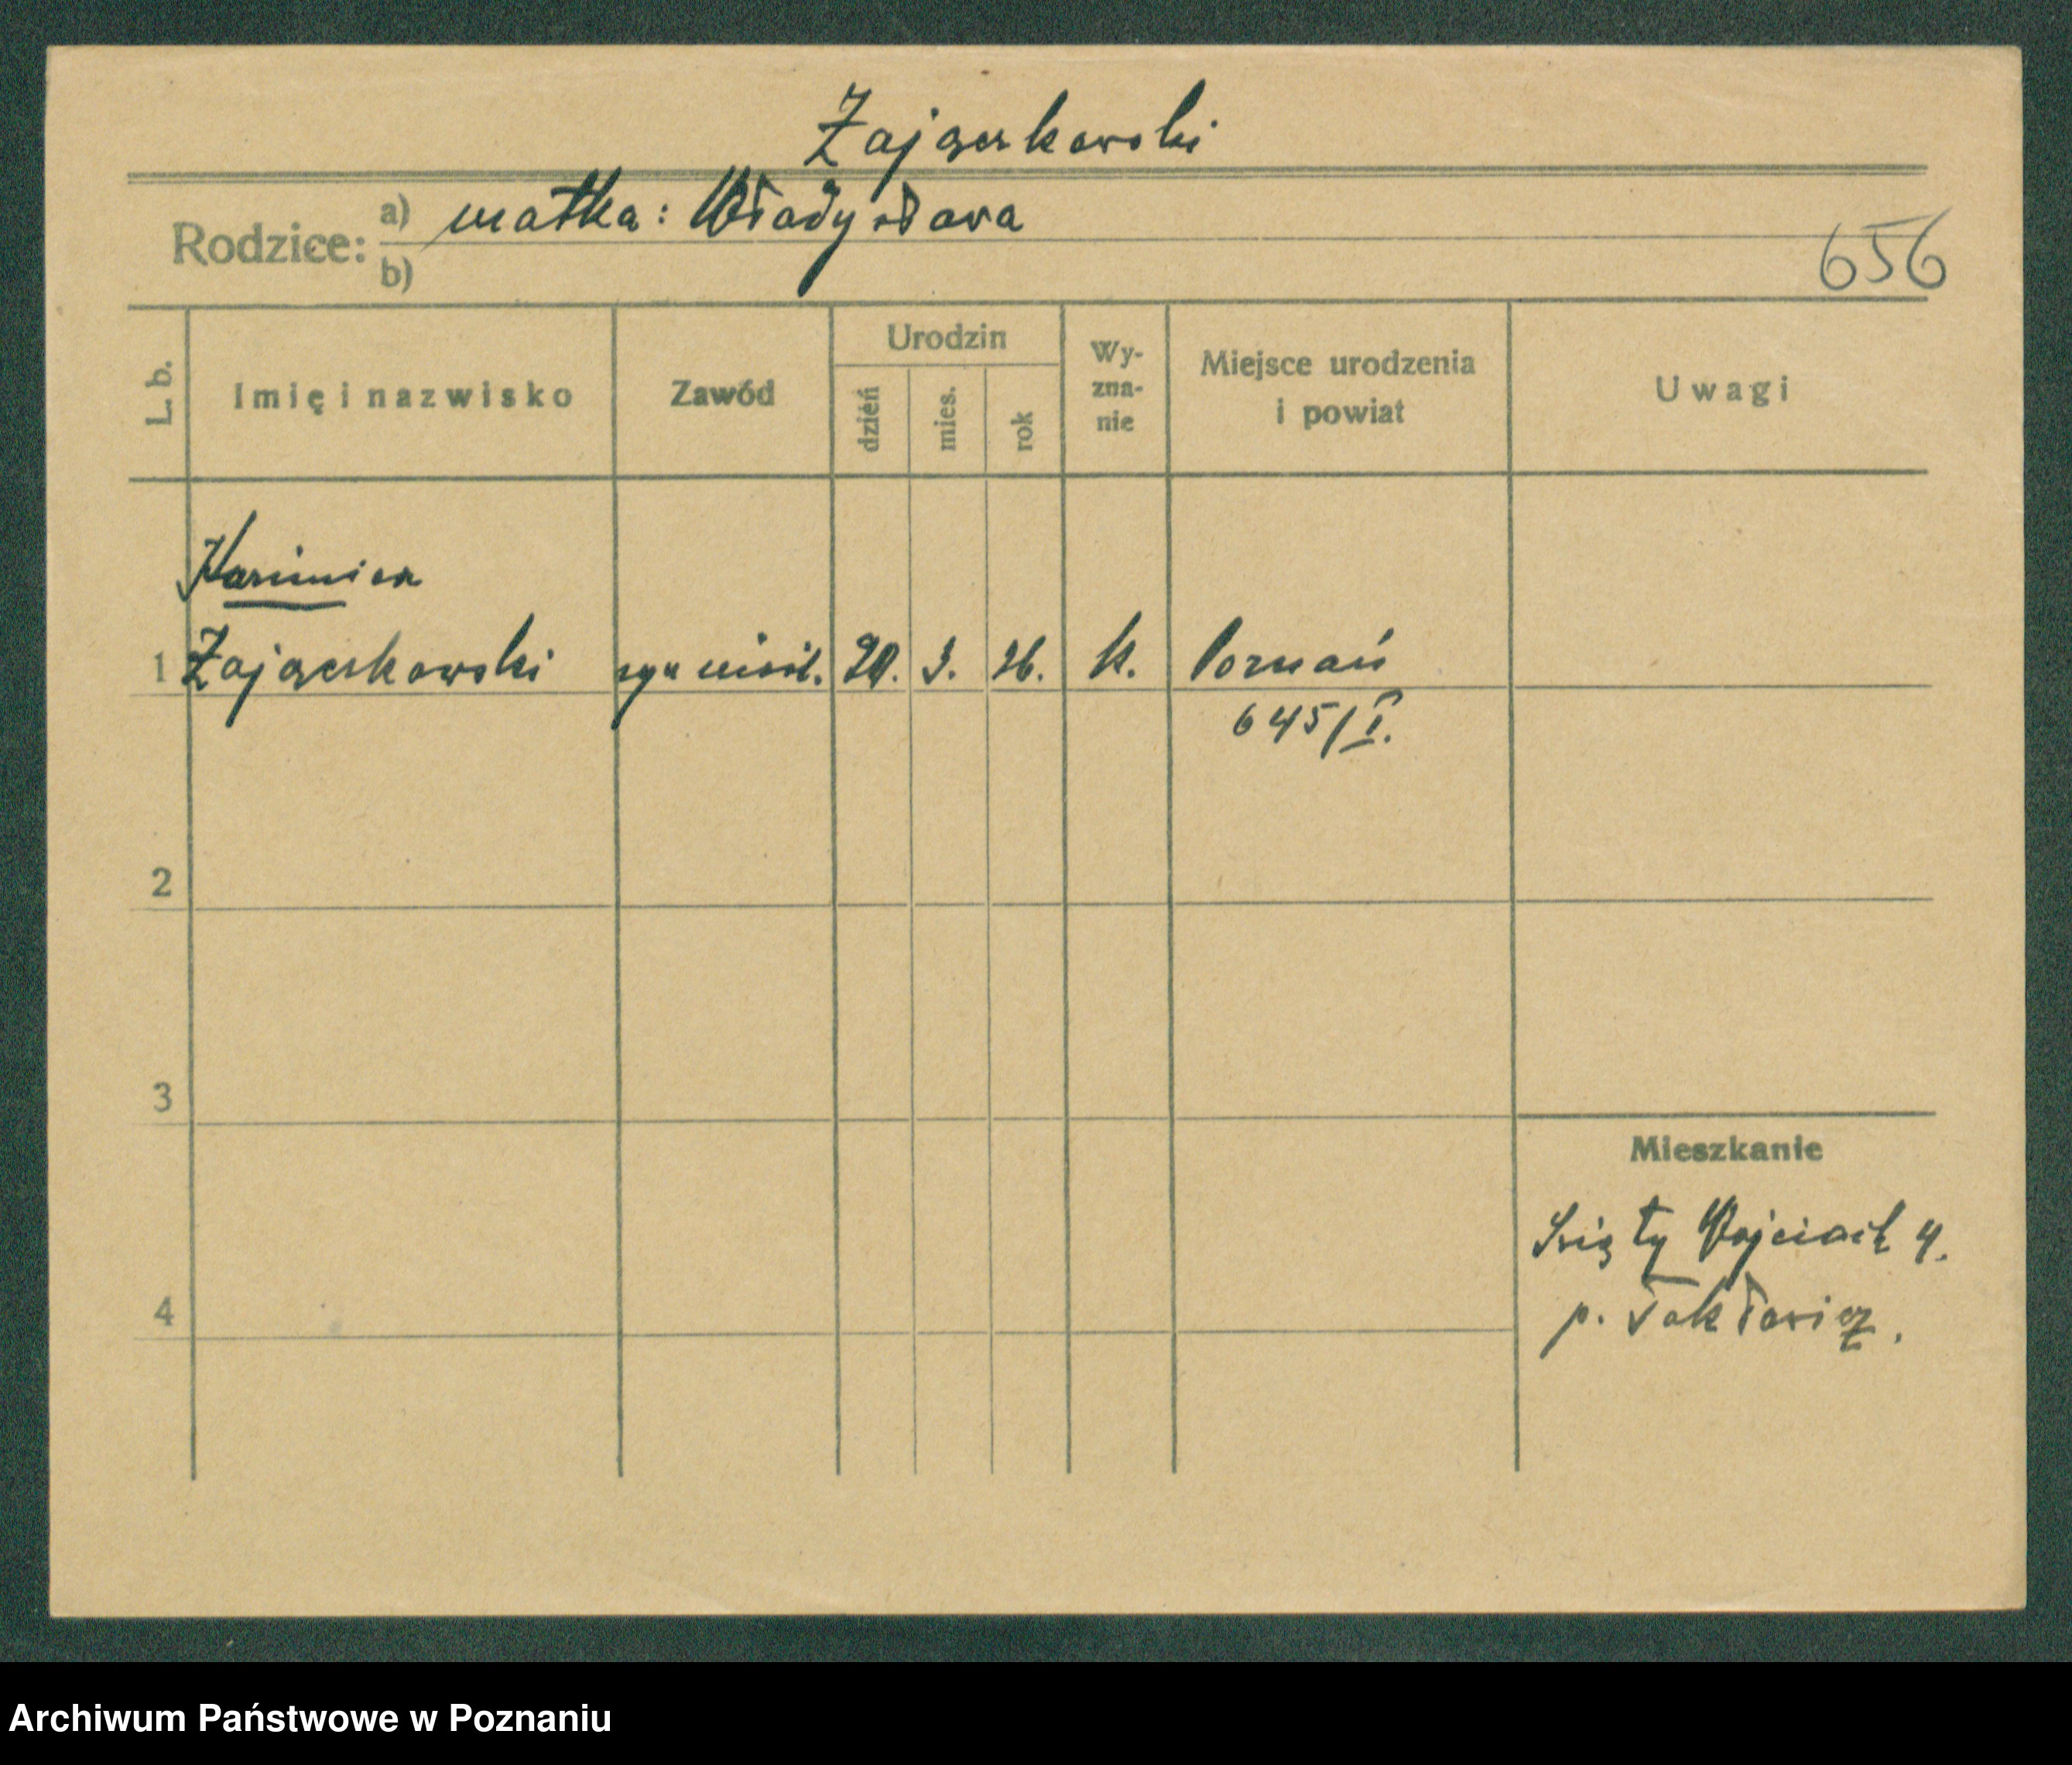 Zajączkowski
Rodzice: a) matka: Władysława
b)
656
L. b.
Imię i nazwisko
Zawód
Urodzin
dzień
mies.
rok
Wy-
zna-
nie
Miejsce urodzenia
i powiat
Uwagi
Kazimierz
1 Zajączkowski syn nieśl. 20. 3. 26. k. Poznań
645/I.
2
3
Mieszkanie
Święty Wojciech 4.
4
p.
Archiwum Państwowe w Poznaniu